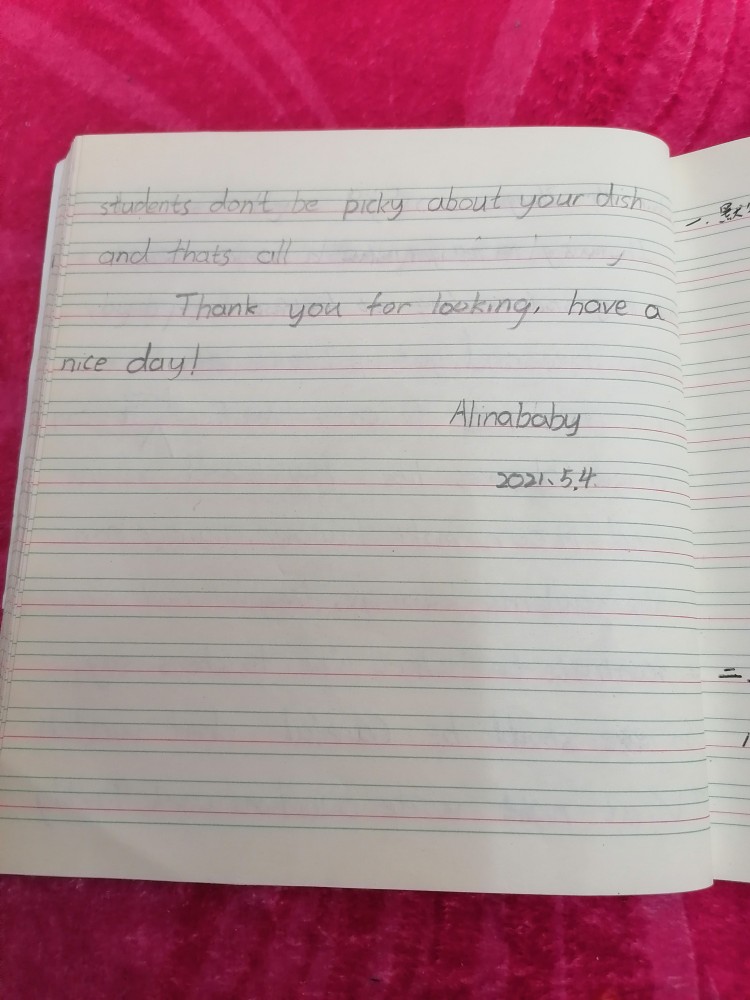 students don't be picky about your dish
and thats all
Thank you for looking, have a
nice day!
Alinababy
2021、5.4.
一.默
二、